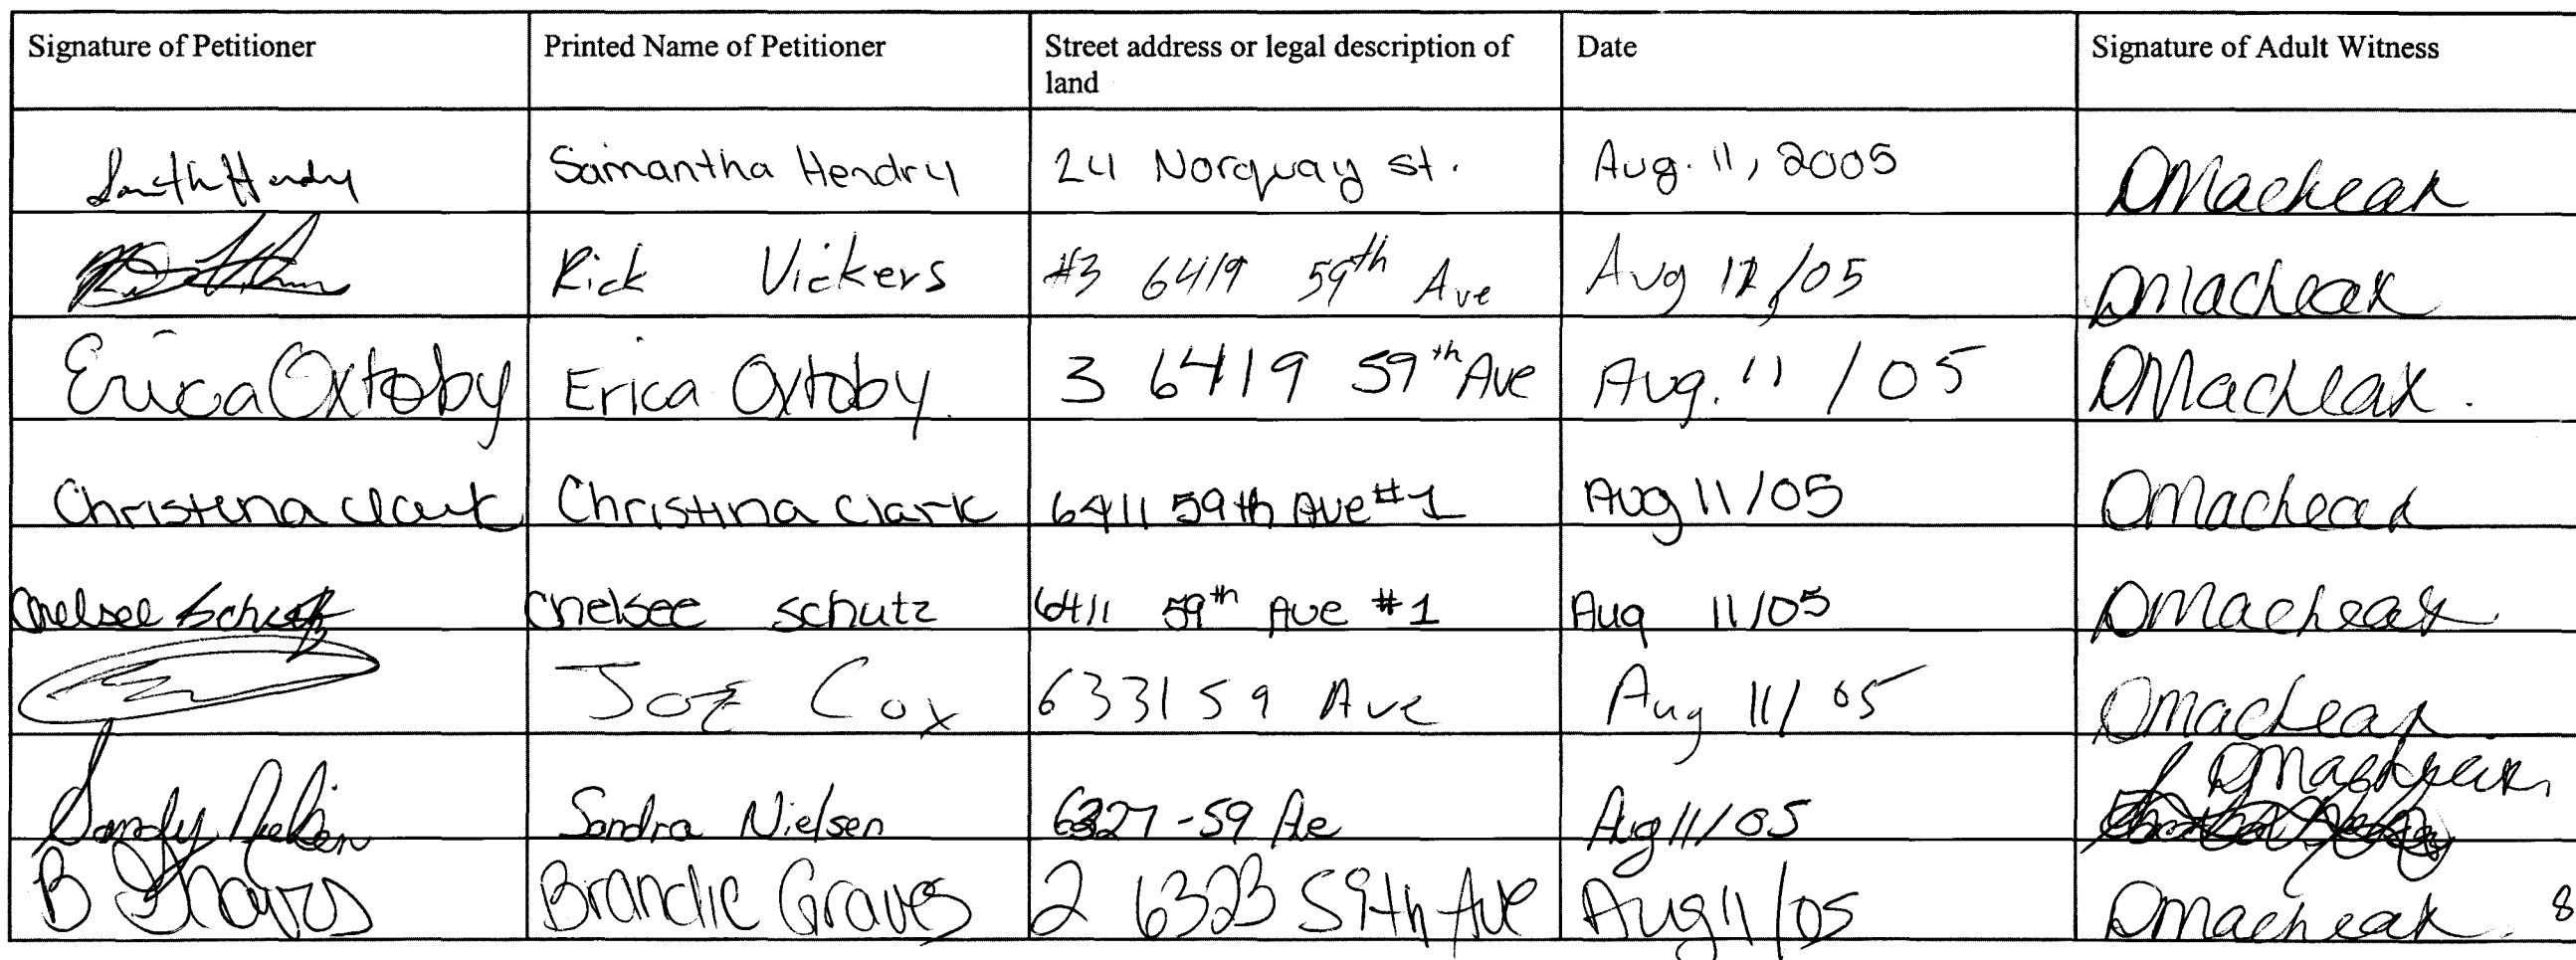 Signature of Petitioner Printed Name of Petitioner Street address or legal description of land Date Signature of Adult Witness
Samantha Hendry 24 Norquay st. Aug. 11, 2005 DMacLean
Rick Vickers #3 6419 59th Ave Aug /05 DMacLean
Erica Oxtoby Erica Oxtoby. 3 6419 59th Ave Aug. 11 /05 DMacLean.
Christina Clark Christina Clark 6411 59th Ave #1 Aug 11/05 DMacLean
Chelsee Schutz Chelsee Schutz 6411 59th Ave #1 Aug 11/05 DMacLean
Joe Cox 6331 59 Ave Aug 11/05 DMacLean
Sandy Nielsen Sandra Nielsen 6327-59 Ae Aug 11/05 DMacLean
B Graves Brandie Graves 2 6323 59th Ave Aug 11/05 DMacLean 8